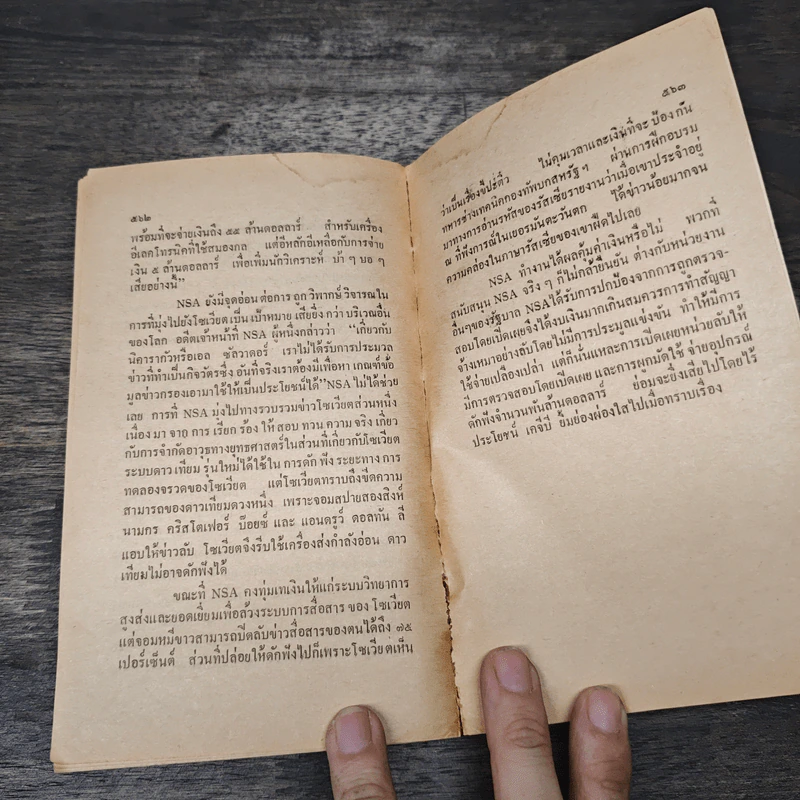 ๕๖๒
พร้อมที่จะจ่ายเงินถึง ๕๕ ล้านดอลลาร์ สำหรับเครื่อง
อีเลคโทรนิคที่ใช้สมองกล แต่อีหลักอีเหลื่อกับการจ่าย
เงิน ๕ ล้านดอลลาร์ เพื่อเพิ่มนักวิเคราะห์ บ้า ๆ บอ ๆ
เสียอย่างนี้"
NSA ยังมีจุดอ่อน ต่อ การ ถูก วิพากษ์ วิจารณ์ใน
การที่มุ่งไปยังโซเวียต เป็น เป้าหมาย เสียยิ่ง กว่า บริเวณอื่น
ของโลก อดีตเจ้าหน้าที่ NSA ผู้หนึ่งกล่าวว่า "เกี่ยวกับ
นิคารากัวหรือเอล ซัลวาดอร์ เราไม่ได้รับการประมวล
ข่าวที่ทำเป็นกิจวัตรซึ่ง อันที่จริงเราต้องมีเพื่อหา เกณฑ์ข้อ
มูลข่าวกรองเอามาใช้ให้เป็นประโยชน์ได้" NSA ไม่ได้ช่วย
เลย การที่ NSA มุ่งไปทางรวบรวมข่าวโซเวียตส่วนหนึ่ง
เนื่อง มา จาก การ เรียก ร้อง ให้ สอบ ทวน ความ จริง เกี่ยว
กับการจำกัดอาวุธทางยุทธศาสตร์ในส่วนที่เกี่ยวกับโซเวียต
ระบบดาว เทียม รุ่นใหม่ได้ใช้ใน การดัก ฟัง ระยะทาง การ
ทดลองจรวดของโซเวียต แต่โซเวียตทราบถึงขีดความ
สามารถของดาวเทียมดวงหนึ่ง เพราะจอมสปายสองสิงห์
นามกร คริสโตเฟอร์ บ๊อยซ์ และ แอนดรูว์ ดอลทัน ลี
แอบให้ข่าวลับ โซเวียตจึงรีบใช้เครื่องส่งกำลังอ่อน ดาว
เทียมไม่อาจดักฟังได้
ขณะที่ NSA คงทุ่มเทเงินให้แก่ระบบวิทยาการ
สูงส่งและยอดเยี่ยมเพื่อล้วงระบบการสื่อสาร ของ โซเวียต
แต่จอมหมีขาวสามารถปิดลับข่าวสื่อสารของตนได้ถึง ๗๕
เปอร์เซ็นต์ ส่วนที่ปล่อยให้ดักฟังไปก็เพราะโซเวียตเห็น
๕๖๓
ว่าเป็นเรื่องขี้ปะติ๋ว ไม่คุ้มเวลาและเงินที่จะ ป้อง กัน
ทหารช่างเทคนิคกองทัพบกสหรัฐ ๆ ผ่านการฝึกอบรม
มาทางการอ่านรหัสของรัสเซียรายงานว่าเมื่อเขาประจำอยู่
ณ ที่ฟังการณ์ในเยอรมันตะวันตก ได้ข่าวน้อยมากจน
ความคล่องในภาษารัสเซียของเขาฝืดไปเลย
NSA ทำงานได้ผลคุ้มค่าเงินหรือไม่ พวกที่
สนับสนุน NSA จริง ๆ ก็ไม่กล้ายืนยัน ต่างกับหน่วยงาน
อื่นๆของรัฐบาล NSAได้รับการปกป้องจากการถูกตรวจ-
สอบโดยเปิดเผยจึงได้งบเงินมากเกินสมควรการทำสัญญา
จ้างเหมาอย่างลับโดยไม่มีการประมูลแข่งขัน ทำให้มีการ
ใช้จ่ายเปลืองเปล่า แต่ก็นั่นแหละการเปิดเผยหน่วยลับให้
มีการตรวจสอบโดยเปิดเผย และการผูกมัดใช้ จ่ายอุปกรณ์
ดักฟังจำนวนพันล้านดอลลาร์ ย่อมจะยิ่งเสียไปโดยไร้
ประโยชน์ เคจีบี ยิ้มย่องผ่องใสไปเมื่อทราบเรื่อง